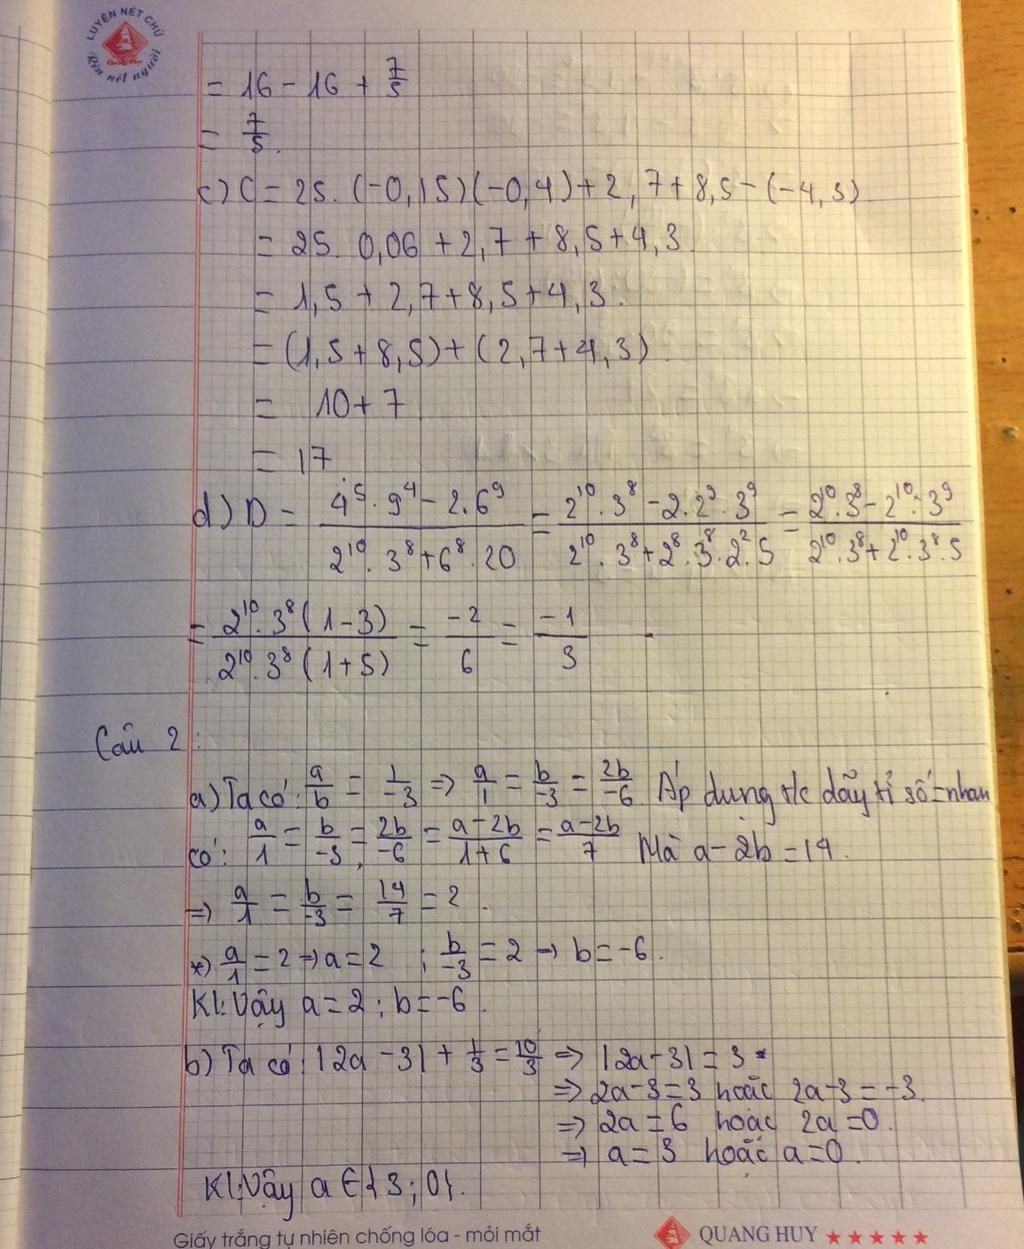 LUYỆN NÉT CHỮ
Rèn nết người
= 16 - 16 + 7/5
= 7/5.
c) C = 25. (-0,15)(-0,4) + 2,7 + 8,5 - (-4,3)
= 25. 0,06 + 2,7 + 8,5 + 4,3
= 1,5 + 2,7 + 8,5 + 4,3.
= (1,5 + 8,5) + (2,7 + 4,3)
= 10 + 7
= 17
d) D = (4⁵.9⁴ - 2.6⁹)/(2¹⁰.3⁸ + 6⁸.20) = (2¹⁰.3⁸ - 2.2⁹.3⁹)/(2¹⁰.3⁸ + 2⁸.3⁸.2².5) = (2¹⁰.3⁸ - 2¹⁰.3⁹)/(2¹⁰.3⁸ + 2¹⁰.3⁸.5)
= (2¹⁰.3⁸(1-3))/(2¹⁰.3⁸(1+5)) = -2/6 = -1/3
Câu 2:
a) Ta có: a/b = 1/-3 => a/1 = b/-3 = 2b/-6. Áp dụng t/c dãy tỉ số = nhau
có: a/1 = b/-3 = 2b/-6 = (a-2b)/(1+6) = (a-2b)/7 Mà a - 2b = 14.
=> a/1 = b/-3 = 14/7 = 2.
*) a/1 = 2 => a = 2 ; b/-3 = 2 => b = -6.
Kl: Vậy a = 2 ; b = -6.
b) Ta có: |2a - 3| + 1/3 = 10/3 => |2a - 3| = 3
=> 2a - 3 = 3 hoặc 2a - 3 = -3.
=> 2a = 6 hoặc 2a = 0.
=> a = 3 hoặc a = 0.
Kl: Vậy a ∈ {3 ; 0}.
Giấy trắng tự nhiên chống lóa - mỏi mắt QUANG HUY ★★★★★